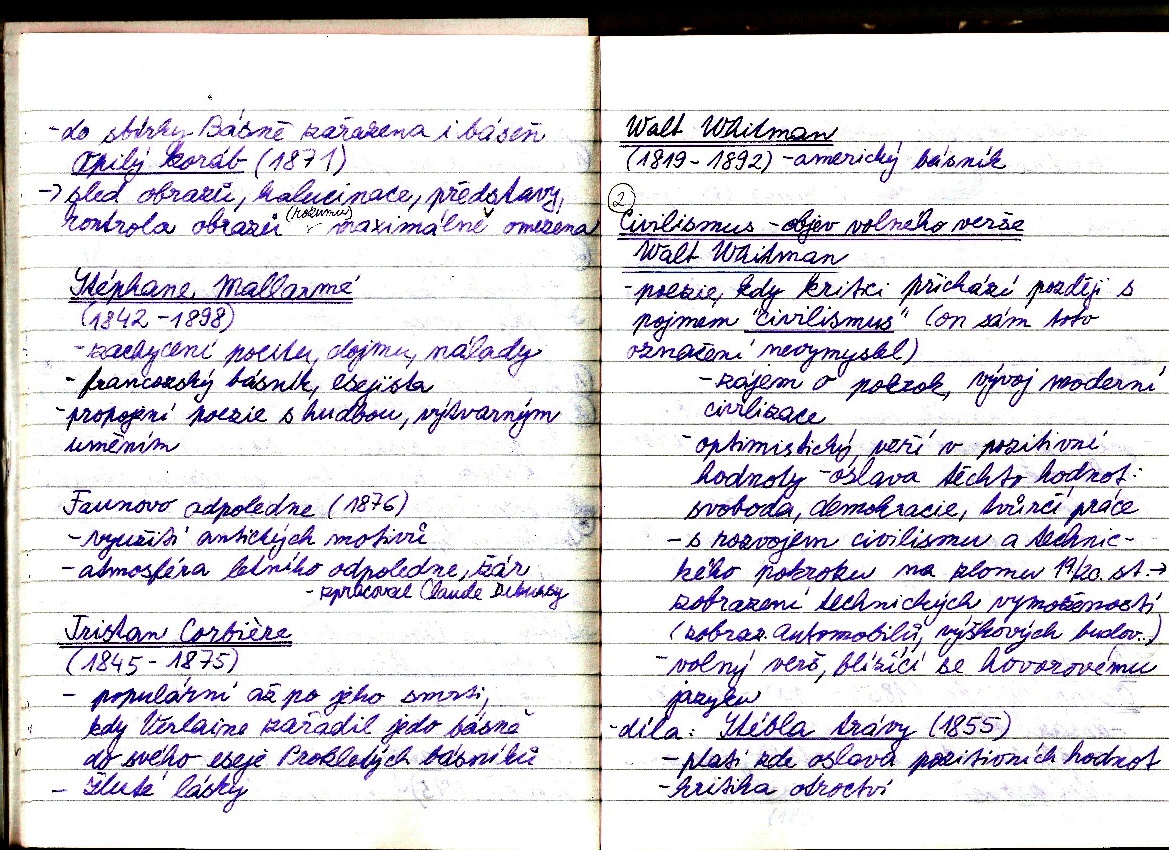 - do sbírky Básně zařazena i báseň
Opilý koráb (1871)
-> sled obrazů, halucinace, představy,
kontrola obrazů (rozumu) maximálně omezena
Stéphane Mallarmé
(1842 - 1898)
- zachycení pocitu, dojmu, nálady
- francouzský básník, esejista
- propojení poezie s hudbou, výtvarným
uměním
Faunovo odpoledne (1876)
- využití antických motivů
- atmosféra letního odpoledne, žár
- zpracoval Claude Debussy
Tristan Corbière
(1845 - 1875)
- populární až po jeho smrti,
kdy Verlaine zařadil jedo básně
do svého eseje Prokletých básníků
- Žluté lásky
Walt Whitman
(1819 - 1892) - americký básník
2
Civilismus - objev volného verše
Walt Whitman
- poezie, kdy kritici přichází později s
pojmem "civilismus" (on sám toto
označení nevymyslel)
- zájem o pokrok, vývoj moderní
civilizace
- optimistický, věří v pozitivní
hodnoty - oslava těchto hodnot:
svoboda, demokracie, tvůrčí práce
- s rozvojem civilismu a technic-
kého pokroku na zlomu 19/20. st. ->
zobrazení technických vymožeností
(zobraz. automobilů, výškových budov..)
- volný verš, blížící se hovorovému
jazyku
- díla: Stébla trávy (1855)
- platí zde oslava pozitivních hodnot
- kritika otroctví